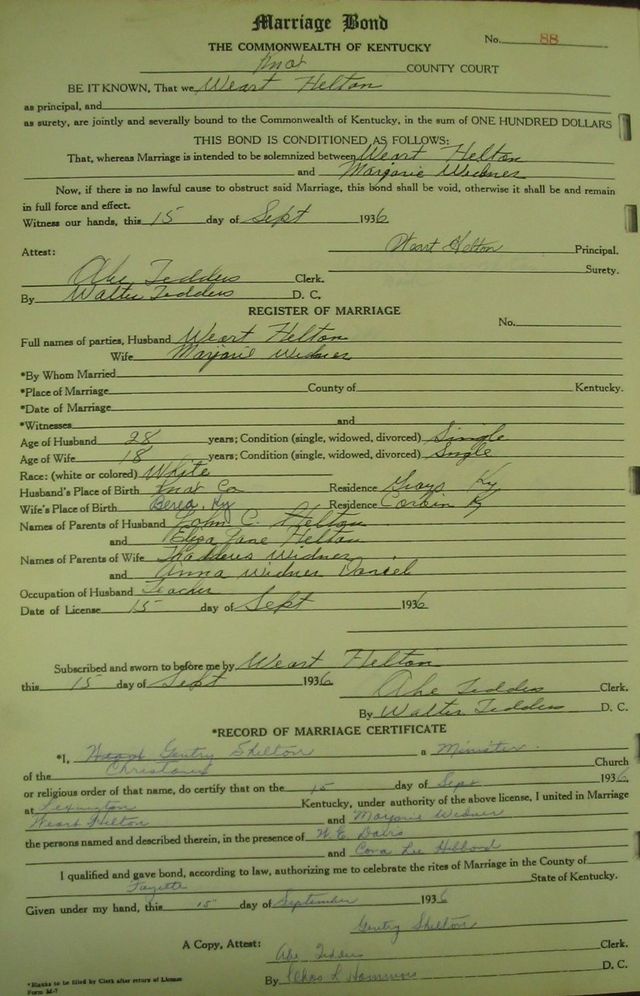 Marriage Bond
No. 88
THE COMMONWEALTH OF KENTUCKY
Knox COUNTY COURT
BE IT KNOWN, That we Weart Helton
as principal, and
as surety, are jointly and severally bound to the Commonwealth of Kentucky, in the sum of ONE HUNDRED DOLLARS
THIS BOND IS CONDITIONED AS FOLLOWS:
That, whereas Marriage is intended to be solemnized between Weart Helton
and Marjorie Widner
Now, if there is no lawful cause to obstruct said Marriage, this bond shall be void, otherwise it shall be and remain
in full force and effect.
Witness our hands, this 15 day of Sept 1936
Weart Helton Principal.
Attest:
Surety.
Abe Tedders Clerk.
By Walter Tedders D. C.
REGISTER OF MARRIAGE
No.
Full names of parties, Husband Weart Helton
Wife Marjorie Widner
*By Whom Married
*Place of Marriage County of Kentucky.
*Date of Marriage
*Witnesses and
Age of Husband 28 years; Condition (single, widowed, divorced) Single
Age of Wife 18 years; Condition (single, widowed, divorced) Single
Race: (white or colored) White
Husband's Place of Birth Knox Co Residence Grays Ky
Wife's Place of Birth Berea, Ky Residence Corbin Ky
Names of Parents of Husband John C. Helton
and Eliza Jane Helton
Names of Parents of Wife Thadders Widner
and Anna Widner Daniel
Occupation of Husband Teacher
Date of License 15 day of Sept 1936
Subscribed and sworn to before me by Weart Helton
this 15 day of Sept 1936
Abe Tedders Clerk.
By Walter Tedders D. C.
*RECORD OF MARRIAGE CERTIFICATE
*I, Gentry Shelton a Minister
of the Christian Church
or religious order of that name, do certify that on the 15 day of Sept 1936
at Lexington Kentucky, under authority of the above license, I united in Marriage
Weart Helton and Marjorie Widner
the persons named and described therein, in the presence of W. E. Davis
and Cora Lee Hibbard
I qualified and gave bond, according to law, authorizing me to celebrate the rites of Marriage in the County of
Fayette State of Kentucky.
Given under my hand, this 15" day of September 1936
Gentry Shelton
A Copy, Attest: Abe Tedders Clerk.
By Hammons D. C.
*Blanks to be filled by Clerk after return of License
Form M-7